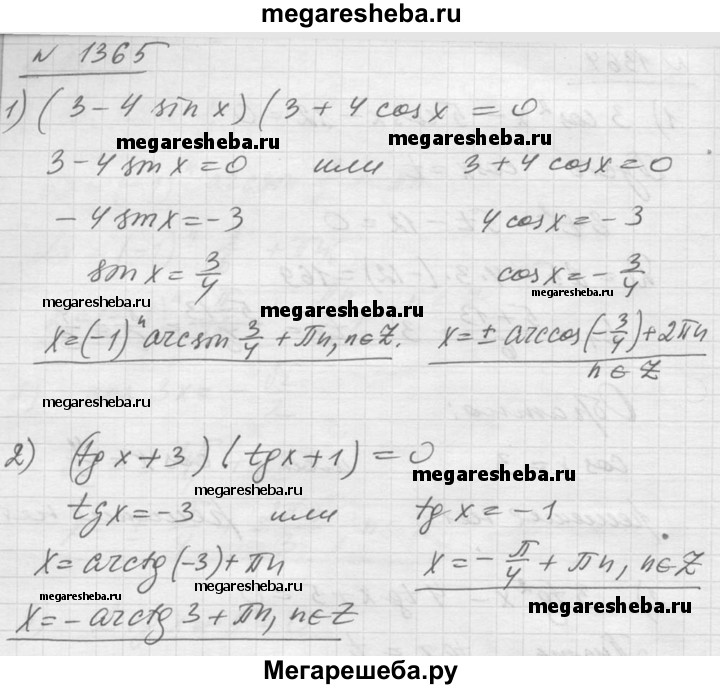 megaresheba.ru
№ 1365
1) (3 - 4 sin x) (3 + 4 cos x = 0
megaresheba.ru megaresheba.ru
3 - 4 sin x = 0 или 3 + 4 cos x = 0
- 4 sin x = - 3 4 cos x = - 3
sin x = 3/4 cos x = - 3/4
megaresheba.ru megaresheba.ru megaresheba.ru
x = (-1)ⁿ arcsin 3/4 + πn, n ∈ Z. x = ± arccos (- 3/4) + 2πn
n ∈ Z
megaresheba.ru
2) (tg x + 3) (tg x + 1) = 0
megaresheba.ru megaresheba.ru
tg x = - 3 или tg x = - 1
megaresheba.ru
x = arctg (-3) + πn x = - π/4 + πn, n ∈ Z
megaresheba.ru megaresheba.ru megaresheba.ru
x = - arctg 3 + πn, n ∈ Z
Мегарешеба.ру